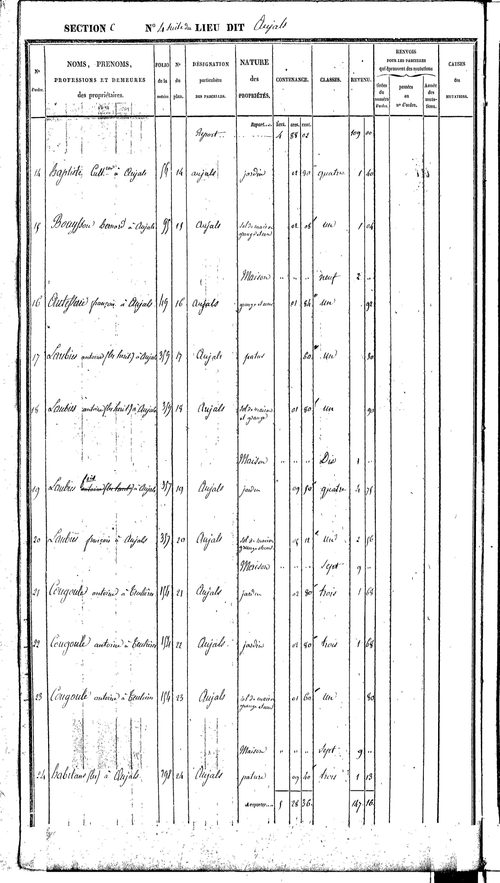 SECTION C N° 4 suite du LIEU DIT Anjals
N° d'ordre.
NOMS, PRENOMS, PROFESSIONS ET DEMEURES des propriétaires.
FOLIO de la matrice
N° du plan.
DÉSIGNATION particulière DES PARCELLES.
NATURE des PROPRIÉTÉS.
CONTENANCE.
CLASSES.
REVENU.
RENVOIS POUR LES PARCELLES qui éprouvent des mutations
portées au n° d'ordre.
Année des mutations.
CAUSES des MUTATIONS.
Report Report 4 88 02 109 00
14 Baptiste à Anjals 14 anjals jardin 02 80 quatre 1 40
15 bernard à Anjals 15 Anjals sol de maison grange et cour 02 08 un 1 04
Maison " " " neuf 2 "
16 françois à Anjals 16 Anjals grange et cour 01 84 un 92
17 Laubies antoine à Anjals 359 17 Anjals patus 60 un 30
18 Laubies antoine à Anjals 359 18 Anjals sol de maison et grange 01 80 un 90
Maison " " " Dix 1 "
19 Laubies à Anjals 357 19 Anjals jardin 09 50 quatre 4 75
20 Laubies françois à Anjals 357 20 Anjals sol de maison grange et cour 05 12 un 2 56
Maison " " " sept 9 "
21 Cougoule antoine à 154 21 Anjals jardin 02 80 trois 1 68
22 Cougoule antoine à 154 22 Anjals jardin 02 80 trois 1 68
23 Cougoule antoine à 154 23 Anjals sol de maison grange et cour 01 60 un 80
Maison " " " sept 9 "
24 habitans (les) à Anjals 298 24 Anjals pature 09 40 trois 1 13
A reporter 5 28 36 147 16